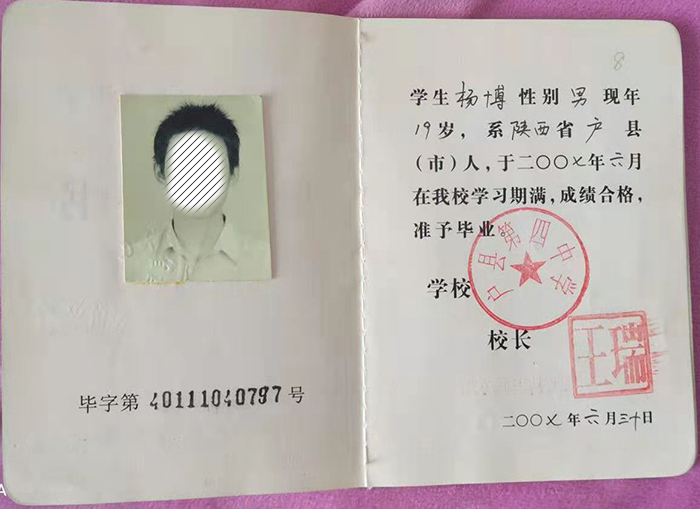 毕字第 40111040797 号
8
学生 杨博 性别 男 现年
19岁，系陕西省户县
（市）人，于二〇〇七年六月
在我校学习期满，成绩合格，
准予毕业。
户县第四中学
学校
校长
王瑞
二〇〇七年六月三十日